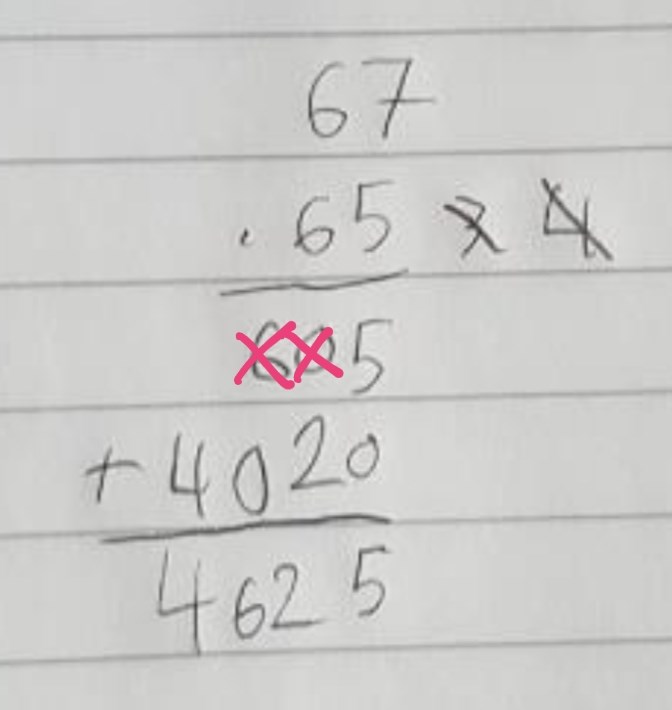 67
. 65 3 4
605
+ 4020
4625